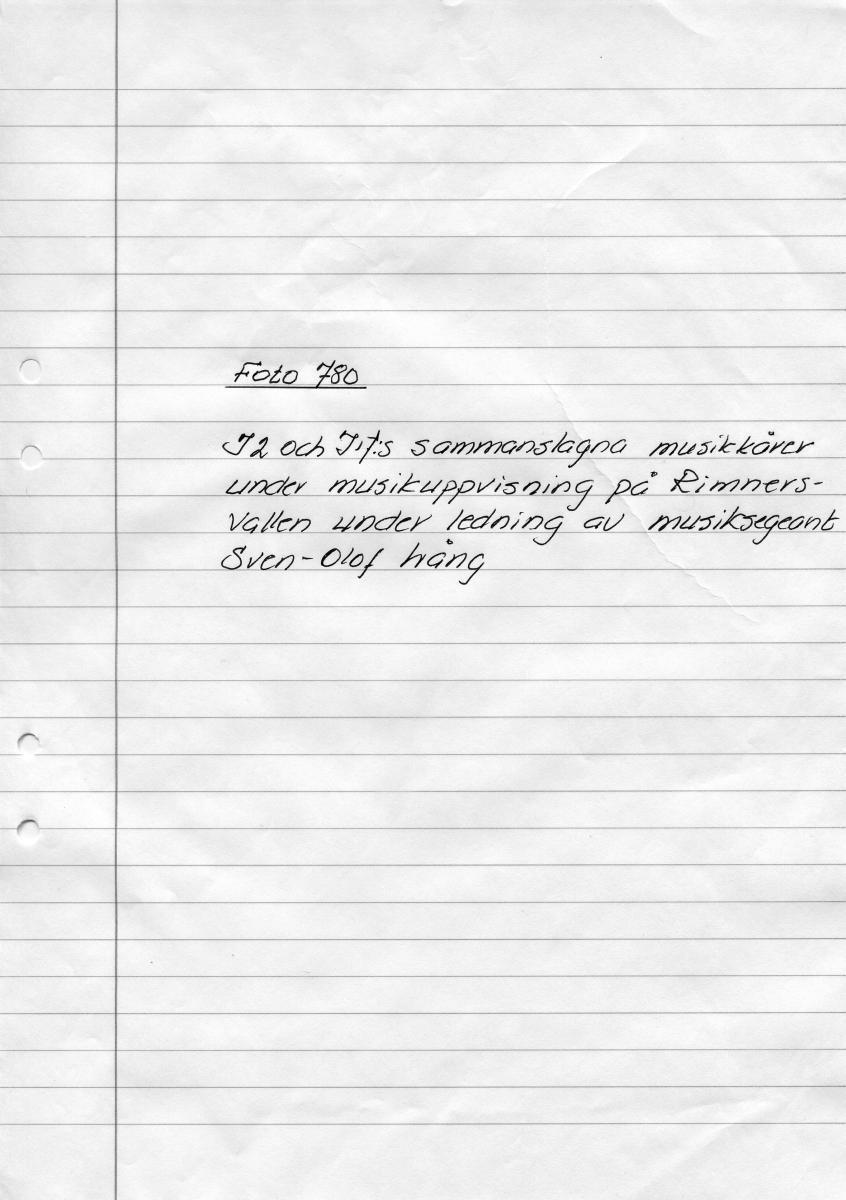 Foto 780
I2 och I17:s sammanslagna musikkårer
under musikuppvisning på Rimners-
vallen under ledning av musiksegeant
Sven-Olof Lång